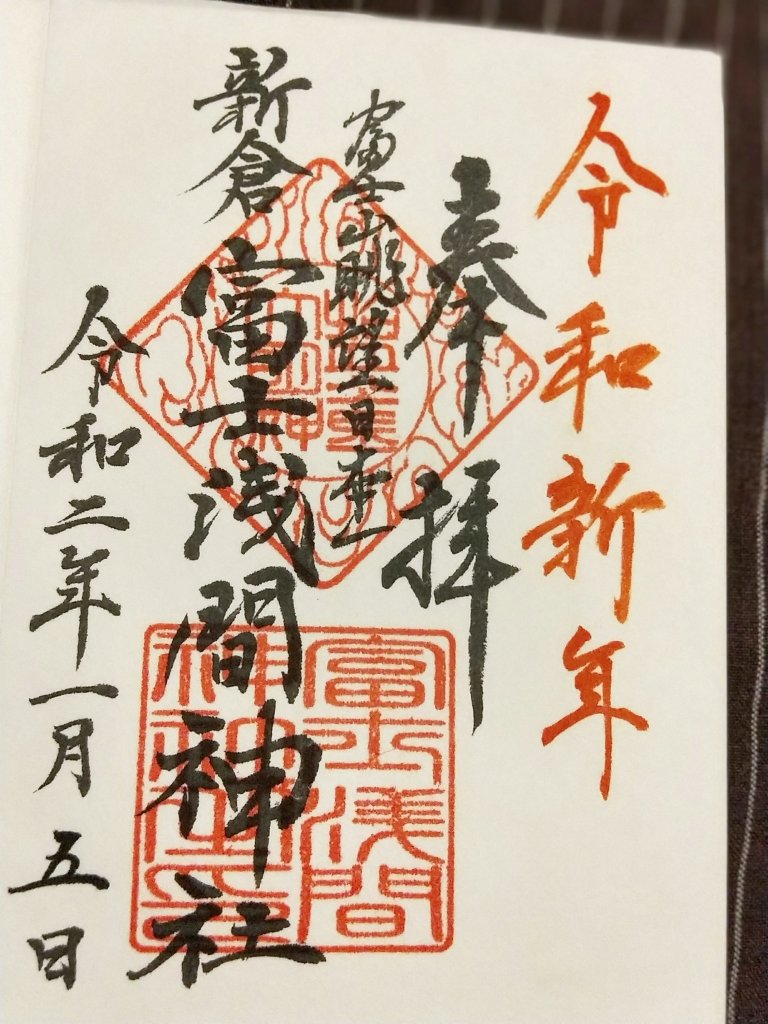 令和新年
奉拝
富士山眺望日本一
新倉富士浅間神社
令和二年一月五日
富士淺間